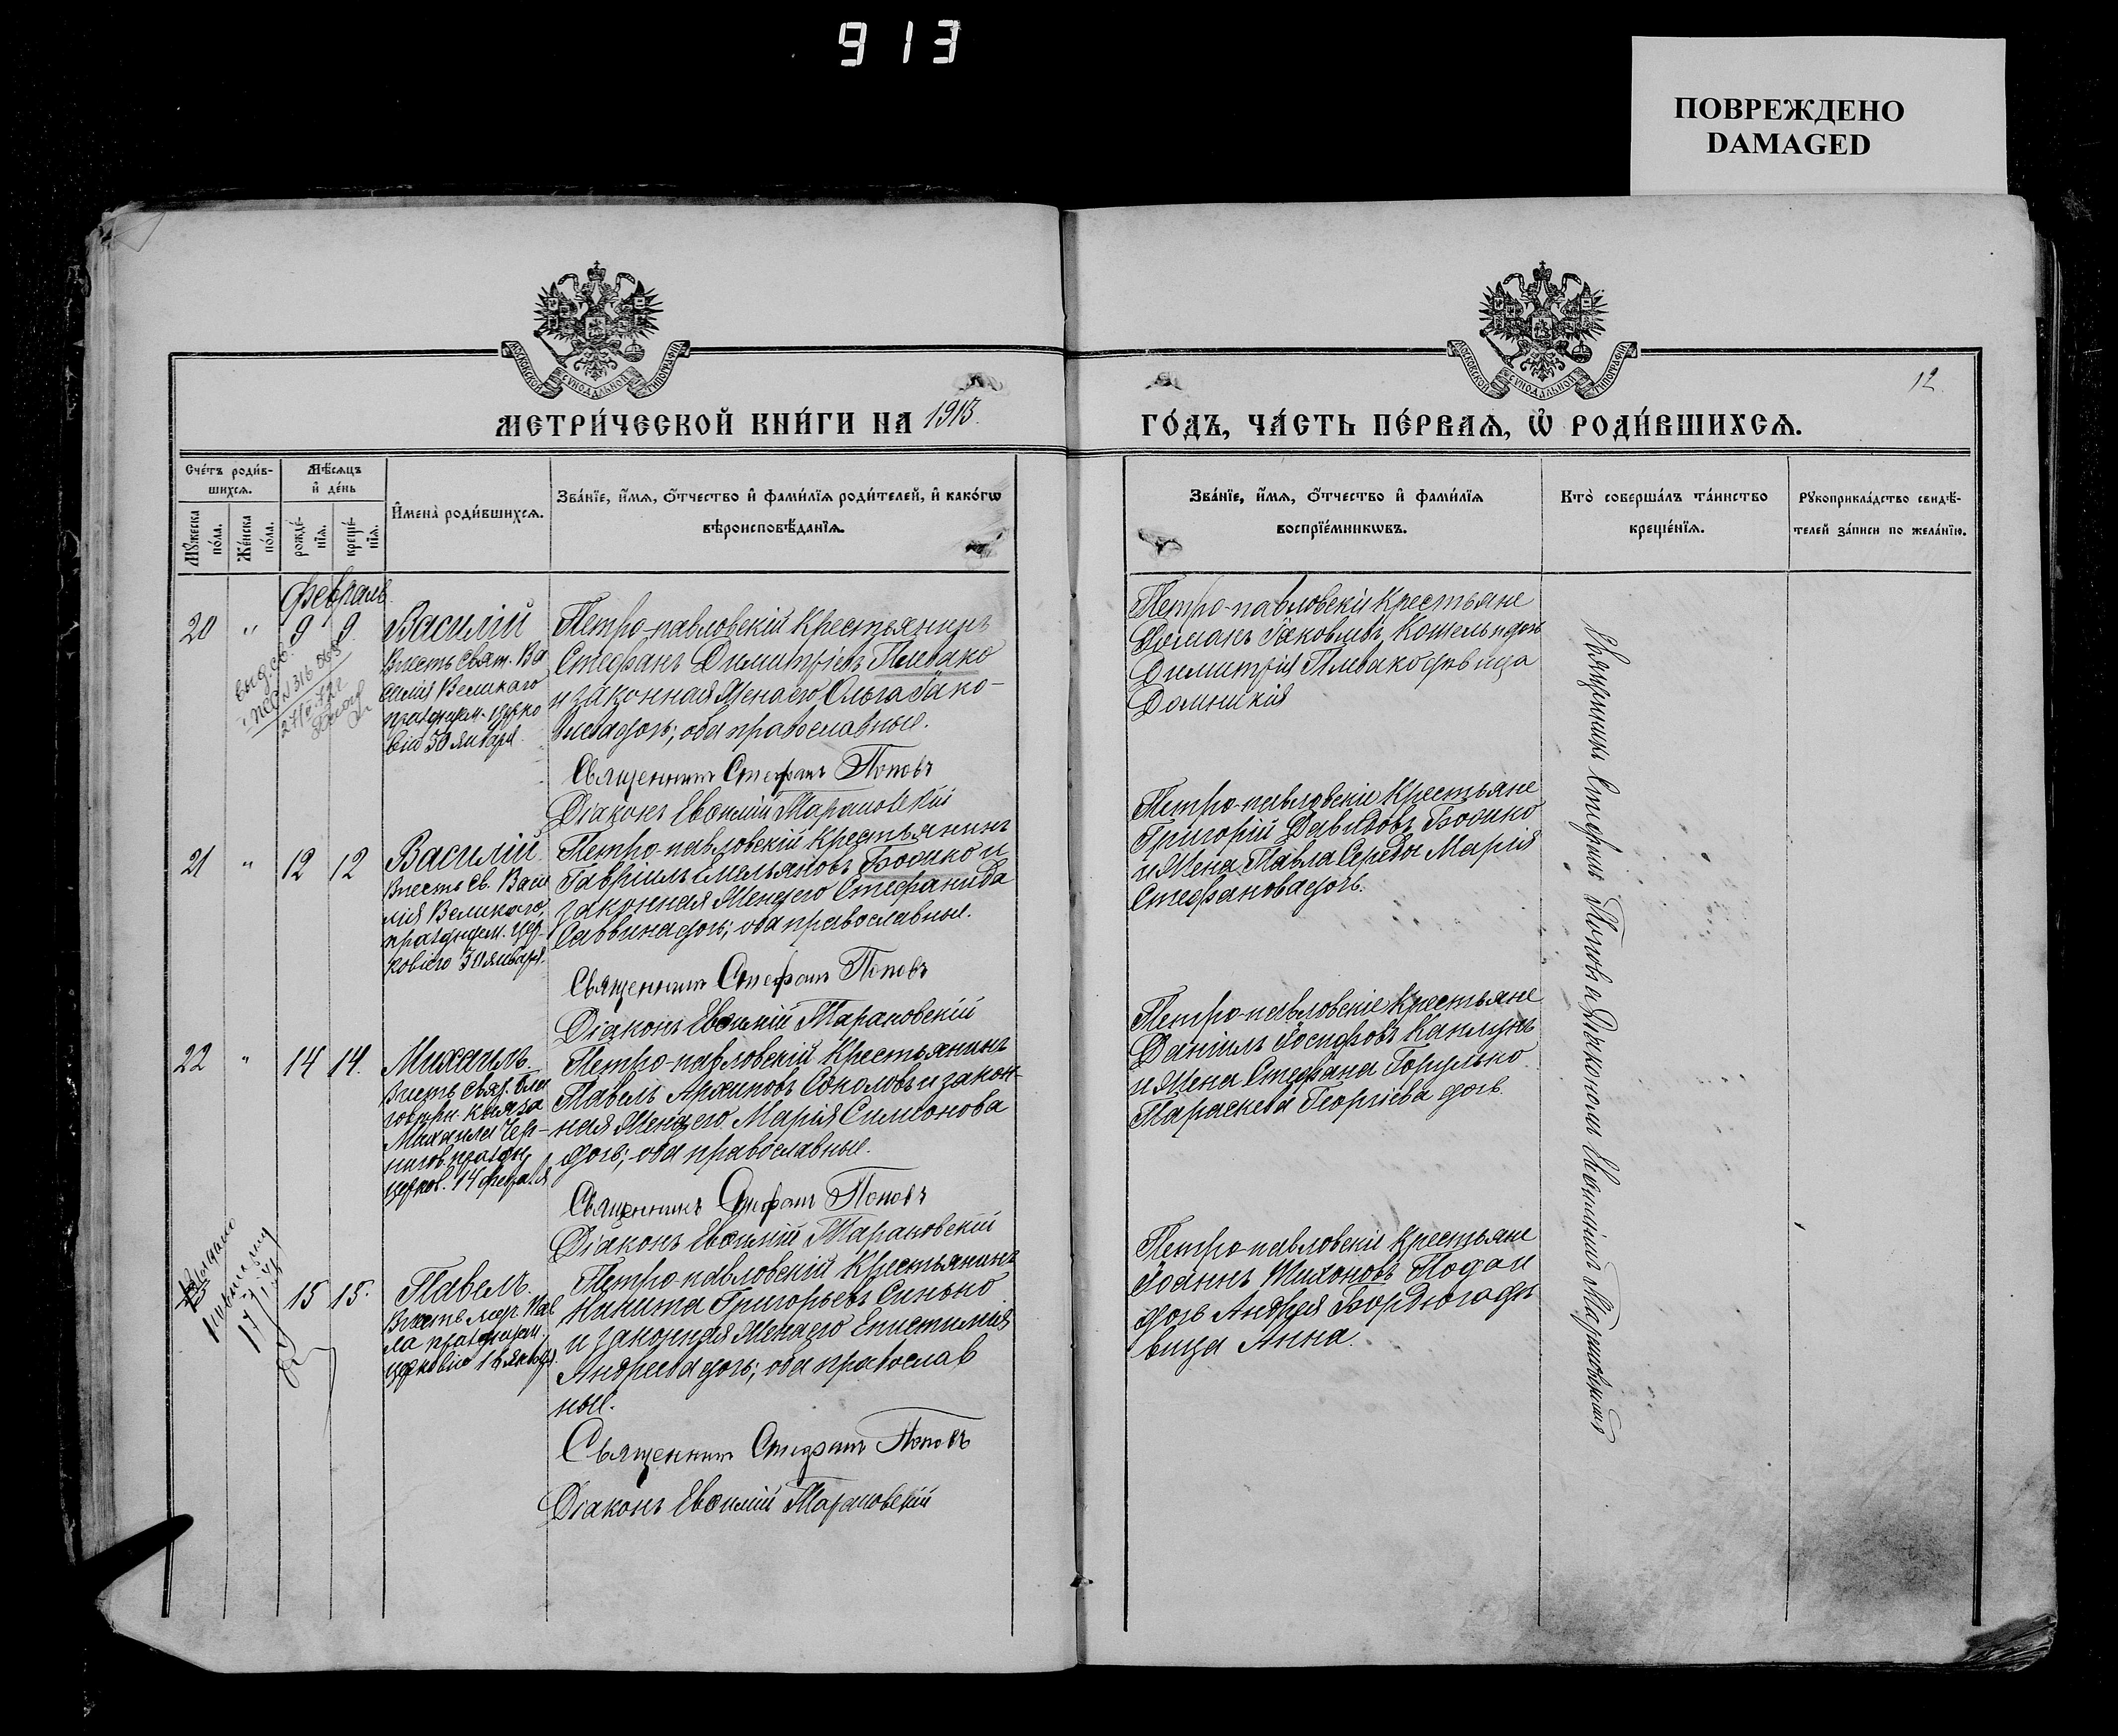 913
ПОВРЕЖДЕНО
DAMAGED
МОСКОВСКОЙ СѴНОДАЛЬНОЙ ТИПОГРАФІИ
МОСКОВСКОЙ СѴНОДАЛЬНОЙ ТИПОГРАФІИ
12.
МЕТРИ́ЧЕСКОЙ КНИ́ГИ НА 1913.
ГО́ДЪ, ЧА́СТЬ ПЕ́РВАѦ, Ѡ РОДИ́ВШИХСѦ.
Сче́тъ роди́в-
шихсѧ.
Мꙋ́жеска
по́ла.
Же́нска
по́ла.
Мѣ́сѧцъ
и҆ де́нь
рожде́-
нїѧ.
креще́-
нїѧ.
И҆мена̀ роди́вшихсѧ.
Зва́нїе, и҆́мѧ, ѻ҆́тчество и҆ фами́лїѧ роди́телей, и҆ како́гѡ
вѣроисповѣ́данїѧ.
Зва́нїе, и҆́мѧ, ѻ҆́тчество и҆ фами́лїѧ
воспрїе́мникѡвъ.
Кто̀ соверша́лъ та́инство
креще́нїѧ.
Рꙋкоприкла́дство свидѣ́-
телей за́писи по жела́нїю.
Февраль.
20 " 9 9.
Василій
Въ честь Свят. Ва
силія Великаго
празднуем. церко
вію 30 января.
Петро-павловскій Крестьянинъ
Стефанъ Димитріевъ Пливако
и законная жена его Ольга Іако-
влева дочь; оба православные.
Священникъ Стефанъ Поповъ
Діаконъ Евѳимій Тарановскій
Петро-павловскіе Крестьяне
Романъ Іаковлевъ Кошель и дочь
Димитрія Пливако дѣвица
Домникія
21 " 12 12
Василій.
Въ честь Св. Васи
лія Великаго,
празднуем. цер-
ковію 30 января.
Петро-павловскій Крестьянинъ
Гавріилъ Емельяновъ Босико и
законная жена его Стефанида
Саввина дочь; оба православные.
Священникъ Стефанъ Поповъ
Діаконъ Евѳимій Тарановскій
Петро-павловскіе Крестьяне
Григорій Давидовъ Босико
и жена Павла Середы Марія
Стефанова дочь.
22 " 14 14.
Михаилъ.
Въ честь Свят. Бла
говѣрн. Князя
Михаила Чер-
нигов. праздн.
церков. 14 февраля
Петро-павловскій Крестьянинъ
Павелъ Архиповъ Соколовъ и закон-
ная жена его Марія Симонова
дочь; оба православные.
Священникъ Стефанъ Поповъ
Діаконъ Евѳимій Тарановскій
Петро-павловскіе Крестьяне
Даніилъ Іосифовъ Каплунъ
и жена Стефана Горулько
Параскева Георгіева дочь.
23 15 15.
Павелъ.
Въ честь муч. Пав
ла празднуем.
церковію 16 января.
Петро-павловскій Крестьянинъ
Никита Григорьевъ Синько
и законная жена его Епистимія
Андреева дочь; оба православ
ные.
Священникъ Стефанъ Поповъ
Діаконъ Евѳимій Тарановскій
Петро-павловскіе Крестьяне
Іоаннъ Тихоновъ Пода и
дочь Андрея Бордюга дѣ
вица Анна.
Священникъ Стефанъ Поповъ и Діаконъ Евѳимій Тарановскій